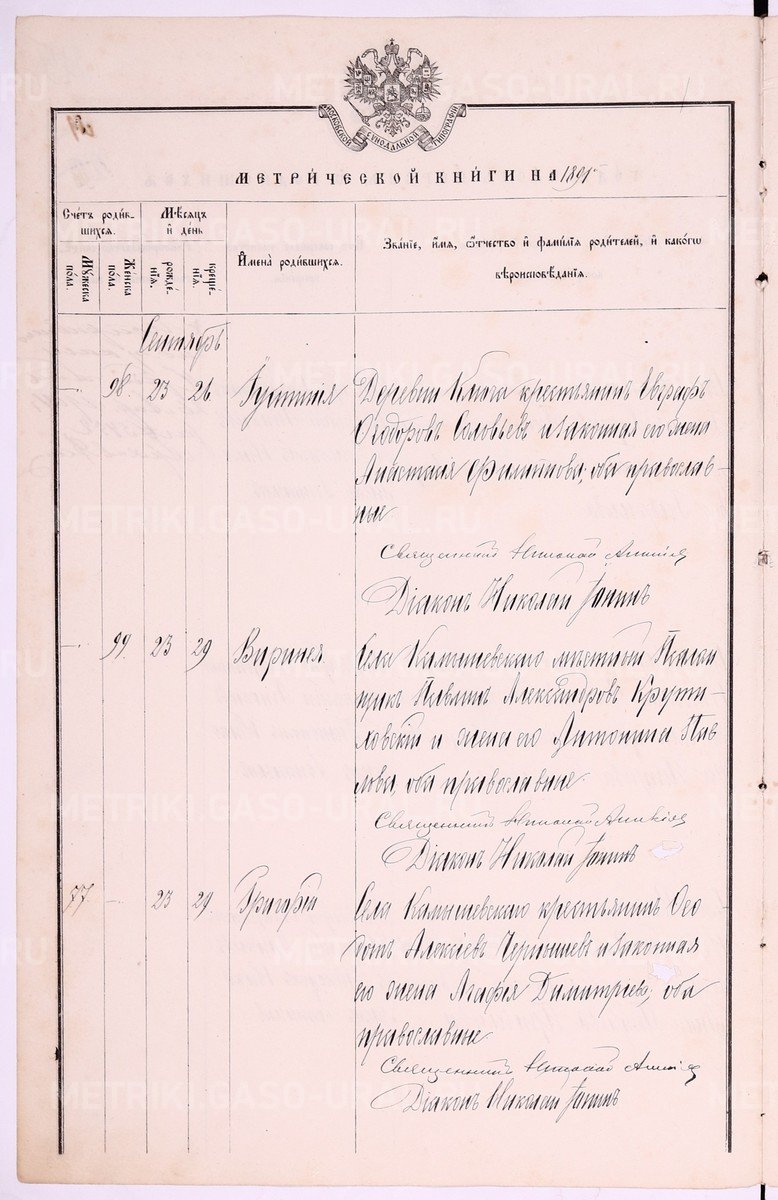 МОСКОВСКОЙ СѴНОДАЛЬНОЙ ТИПОГРАФІИ
МЕТРИ́ЧЕСКОЙ КНИ́ГИ НА 1891 г.
Сче́тъ роди́в-
шихся.
Мꙋ́жеска
по́ла.
Же́нска
по́ла.
Мѣ́сяцъ
и҆ де́нь
рожде́-
нїѧ.
креще́-
нїѧ.
И҆мена̀ роди́вшихся.
Зва́нїе, и҆́мѧ, ѻ҆́тчество и҆ фами́лїѧ роди́телей, и҆ како́гѡ
вѣроисповѣ́данїѧ.
Сентябрь
— 98. 23 26 Іустинія Деревни крестьянинъ Евграфъ
Ѳеодоровъ Соловьевъ и законная его жена
Анастасія Филиппова, оба православ-
ные
Священникъ Николай
Діаконъ Николай
— 99. 23 29 Виринея Села Камышевскаго мѣстный Псалом
щикъ Павлинъ Александровъ Крути-
ховскій и жена его Антонина Пав
лова, оба православные
Священникъ Николай
Діаконъ Николай
77 — 23 29 Григорій Села Камышевскаго крестьянинъ Ѳео
дотъ Алексіевъ Чернышевъ и законная
его жена Агафія Димитріева, оба
православные
Священникъ Николай
Діаконъ Николай
METRIKI.GASO-URAL.RU